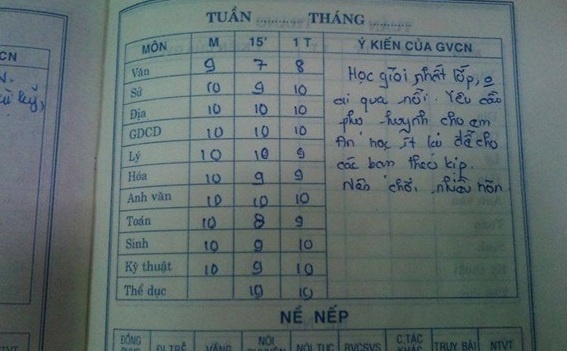 TUẦN THÁNG
MÔN M 15' 1 T Ý KIẾN CỦA GVCN
Văn 9 7 8
Sử 10 9 10
Địa 10 10 10
GDCD 10 10 10
Lý 10 10 9
Hóa 10 9 9
Anh văn 10 10 10
Toán 10 8 9
Sinh 10 9 10
Kỹ thuật 10 9 10
Thể dục 10 10
Học giỏi nhất lớp, o
ai qua nổi. Yêu cầu
phụ huynh cho em
ăn học ít lại để cho
các bạn theo kịp.
Nên chơi nhiều hơn
NỀ NẾP
CN
ĐỒNG ĐI TRỄ VẮNG NÓI NÓI TỤC BVCSVS C.TÁC TRUY BÀI NTVT
NTVT